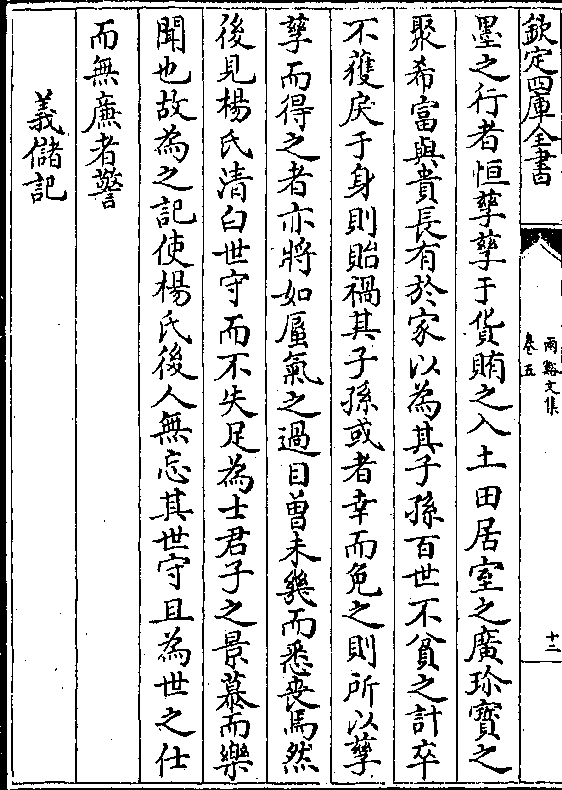 欽定四庫全書
兩谿文集
卷五
十二
墨之行者恒孳孳于貨賄之入土田居室之廣珍寶之
聚希富與貴長有於家以為其子孫百世不貧之計卒
不獲戾于身則貽禍其子孫或者幸而免之則所以孳
孳而得之者亦將如蜃氣之過目曾未幾而悉喪焉然
後見楊氏清白世守而不失足為士君子之景慕而樂
聞也故為之記使楊氏後人無忘其世守且為世之仕
而無廉者警
義儲記